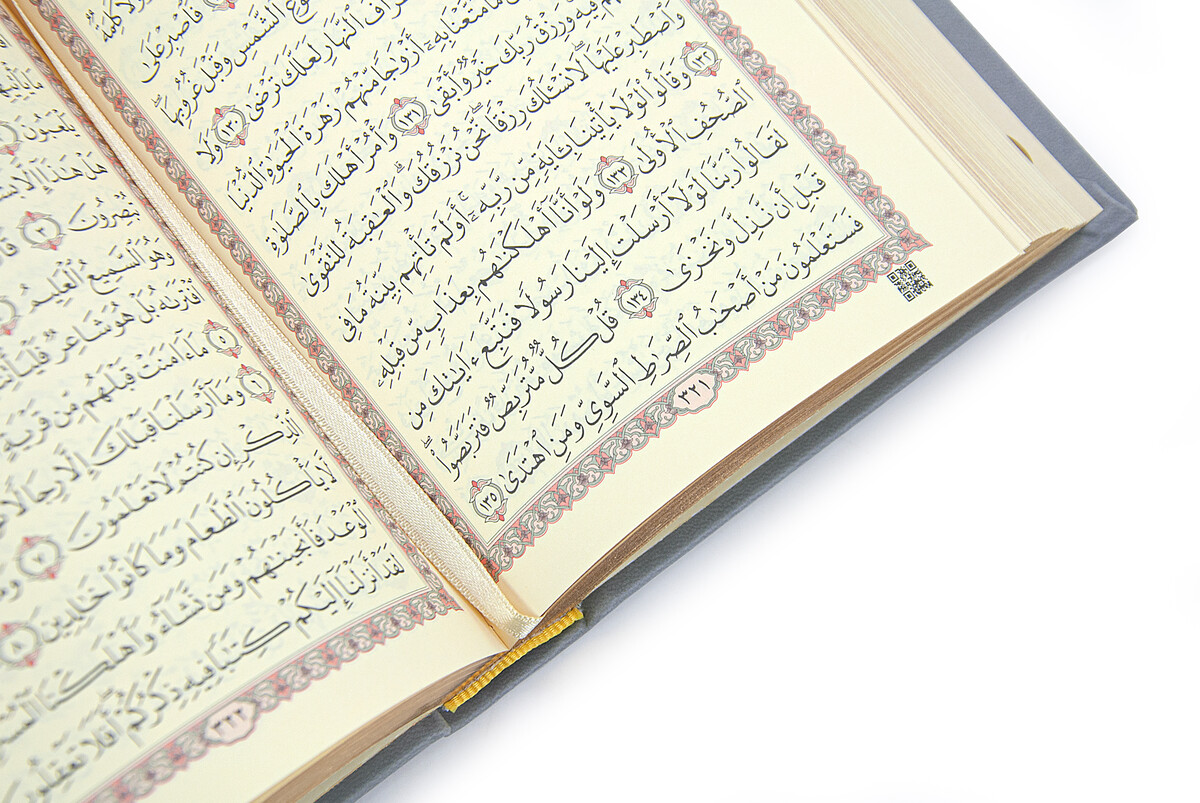 كَلِمَةٌ
فَٱصْبِرْ عَلَىٰ
ٱلشَّمْسِ وَقَبْلَ غُرُوبِهَا
ٱلنَّهَارِ لَعَلَّكَ تَرْضَىٰ ١٣٠ وَلَا
مَا مَتَّعْنَا بِهِۦٓ أَزْوَٰجًا مِّنْهُمْ زَهْرَةَ ٱلْحَيَوٰةِ ٱلدُّنْيَا
فِيهِ وَرِزْقُ رَبِّكَ خَيْرٌ وَأَبْقَىٰ ١٣١ وَأْمُرْ أَهْلَكَ بِٱلصَّلَوٰةِ
وَٱصْطَبِرْ عَلَيْهَا لَا نَسْـَٔلُكَ رِزْقًا نَّحْنُ نَرْزُقُكَ وَٱلْعَـٰقِبَةُ لِلتَّقْوَىٰ
١٣٢ وَقَالُوا۟ لَوْلَا يَأْتِينَا بِـَٔايَةٍ مِّن رَّبِّهِۦٓ أَوَلَمْ تَأْتِهِم بَيِّنَةُ مَا فِى
ٱلصُّحُفِ ٱلْأُولَىٰ ١٣٣ وَلَوْ أَنَّآ أَهْلَكْنَـٰهُم بِعَذَابٍ مِّن قَبْلِهِۦ
لَقَالُوا۟ رَبَّنَا لَوْلَآ أَرْسَلْتَ إِلَيْنَا رَسُولًا فَنَتَّبِعَ ءَايَـٰتِكَ مِن
قَبْلِ أَن نَّذِلَّ وَنَخْزَىٰ ١٣٤ قُلْ كُلٌّ مُّتَرَبِّصٌ فَتَرَبَّصُوا۟
فَسَتَعْلَمُونَ مَنْ أَصْحَـٰبُ ٱلصِّرَٰطِ ٱلسَّوِىِّ وَمَنِ ٱهْتَدَىٰ ١٣٥
٣٢١
هَلْ هَـٰذَآ إِلَّا
تُبْصِرُونَ ٣
وَهُوَ ٱلسَّمِيعُ ٱلْعَلِيمُ
ٱفْتَرَىٰهُ بَلْ هُوَ شَاعِرٌ
٥ مَآ ءَامَنَتْ قَبْلَهُم مِّن قَرْيَةٍ
٦ وَمَآ أَرْسَلْنَا قَبْلَكَ إِلَّا رِجَالًا
ٱلذِّكْرِ إِن كُنتُمْ لَا تَعْلَمُونَ ٧
لَّا يَأْكُلُونَ ٱلطَّعَامَ وَمَا كَانُوا۟ خَـٰلِدِينَ ٨
ٱلْوَعْدَ فَأَنجَيْنَـٰهُمْ وَمَن نَّشَآءُ وَأَهْلَكْنَا
لَقَدْ أَنزَلْنَآ إِلَيْكُمْ كِتَـٰبًا فِيهِ ذِكْرُكُمْ أَفَلَا تَعْقِلُونَ
٣٢٢